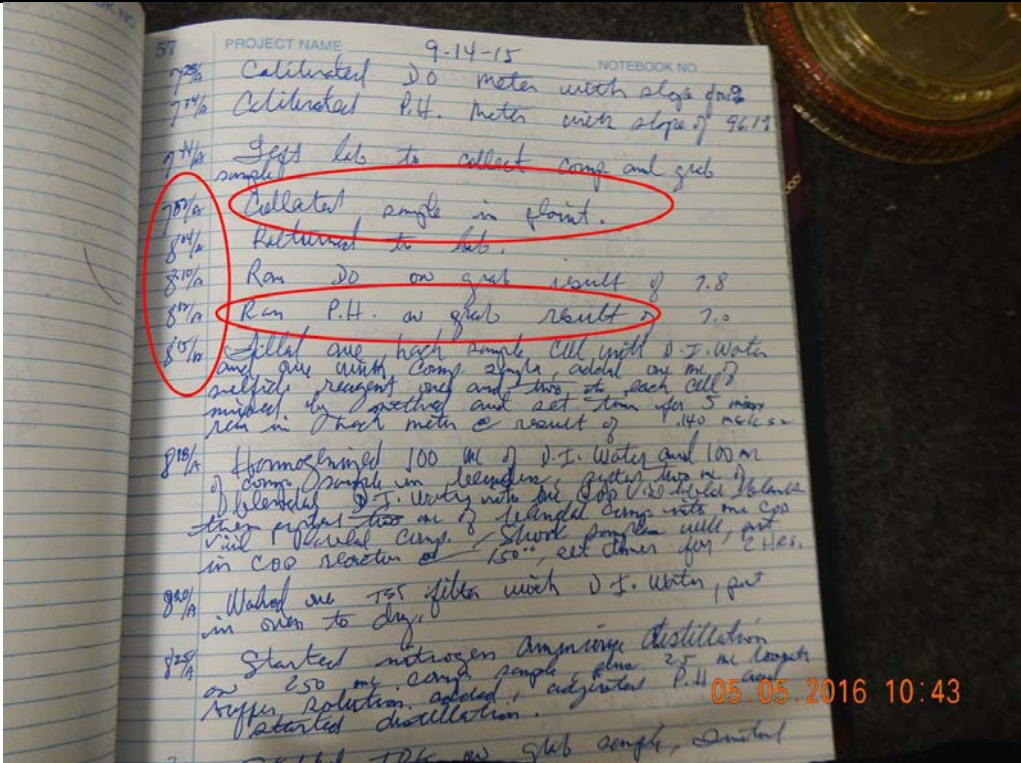 57 PROJECT NAME 9-14-15 NOTEBOOK NO.
Calibrated DO meter with slope
7 34/A Calibrated P.H. Meter with slope of 96.19
7 44/A Left lab to collect comp and grab
sample
Collated sample in plaint.
8 04/A Returned to lab.
8:10/A Ran DO on grab result of 7.8
8 12/A Ran P.H. on grab result of 7.0
8 15/A Filled one hach sample cell with D.I. Water
and one with comp sample, added one ml of
sulfide reagent one and two to each cell
mixed by method and set time for 5
in hach meter result of .140
8 18/A Hommogenized 100 ml of D.I. Water and 100 ml
of comp sample in blender, two ml of
blended D.I. Water
then two ml of comp into one COD
vial comp. well, put
in COD reactor @ 150°, set timer for 2 HRS.
8 20/A Washed one TSS filter with D.I. Water, put
in oven to dry.
8 25/A Started nitrogen ammonia distillation
on 250 ml comp sample, 25 ml
buffer solution added, adjusted P.H. and
started distillation.
on grab sample,
05.05.2016 10:43